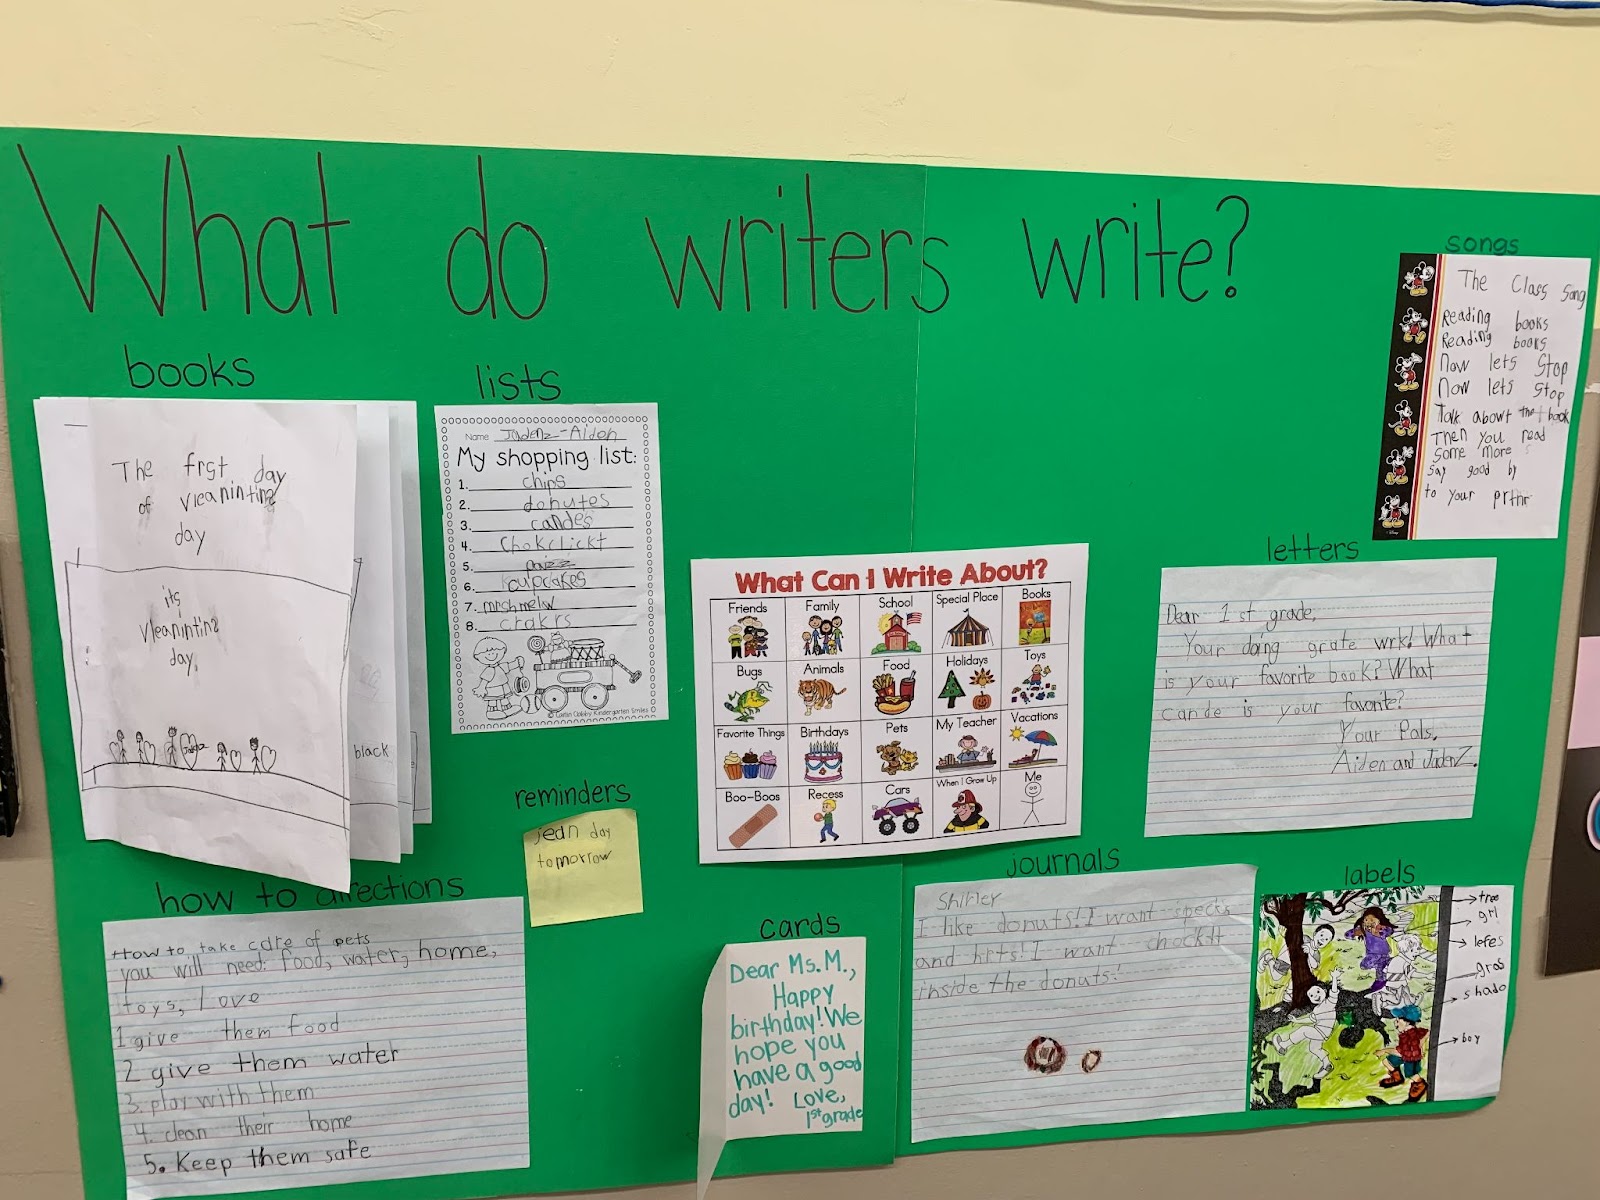 What do writers write?
books
The frst day
of vleanintins
day
its
vleanintins
day.
black
lists
Name Jadenz-Aiden
My shopping list:
1. chips
2. donutes
3. candes
4. chokclickt
5.
6. cupcakes
7. mrshmelw
8. crakrs
songs
The Class Song
Reading books
Reading books
Now lets Stop
Now lets Stop
Talk about the book
Then you read
Some more
say good by
to your prtnr
What Can I Write About?
Friends Family School Special Place Books
Bugs Animals Food Holidays Toys
Favorite Things Birthdays Pets My Teacher Vacations
Boo-Boos Recess Cars When I Grow Up Me
letters
Dear 1st grade,
Your doing grate wrk! What
is your favorite book? What
cande is your favorite?
Your Pals,
Aiden and JadenZ.
reminders
jean day
tomorrow
how to directions
How to take care of pets
you will need: food, water, home,
toys, love
1 give them food
2 give them water
3. play with them
4. clean their home
5. Keep them safe
cards
Dear Ms. M.,
Happy
birthday! We
hope you
have a good
day! Love,
1st grade
journals
Shirley
I like donuts! I want specks
and hrts! I want chocklt
inside the donuts!
labels
tree
grl
lefes
gras
shado
boy